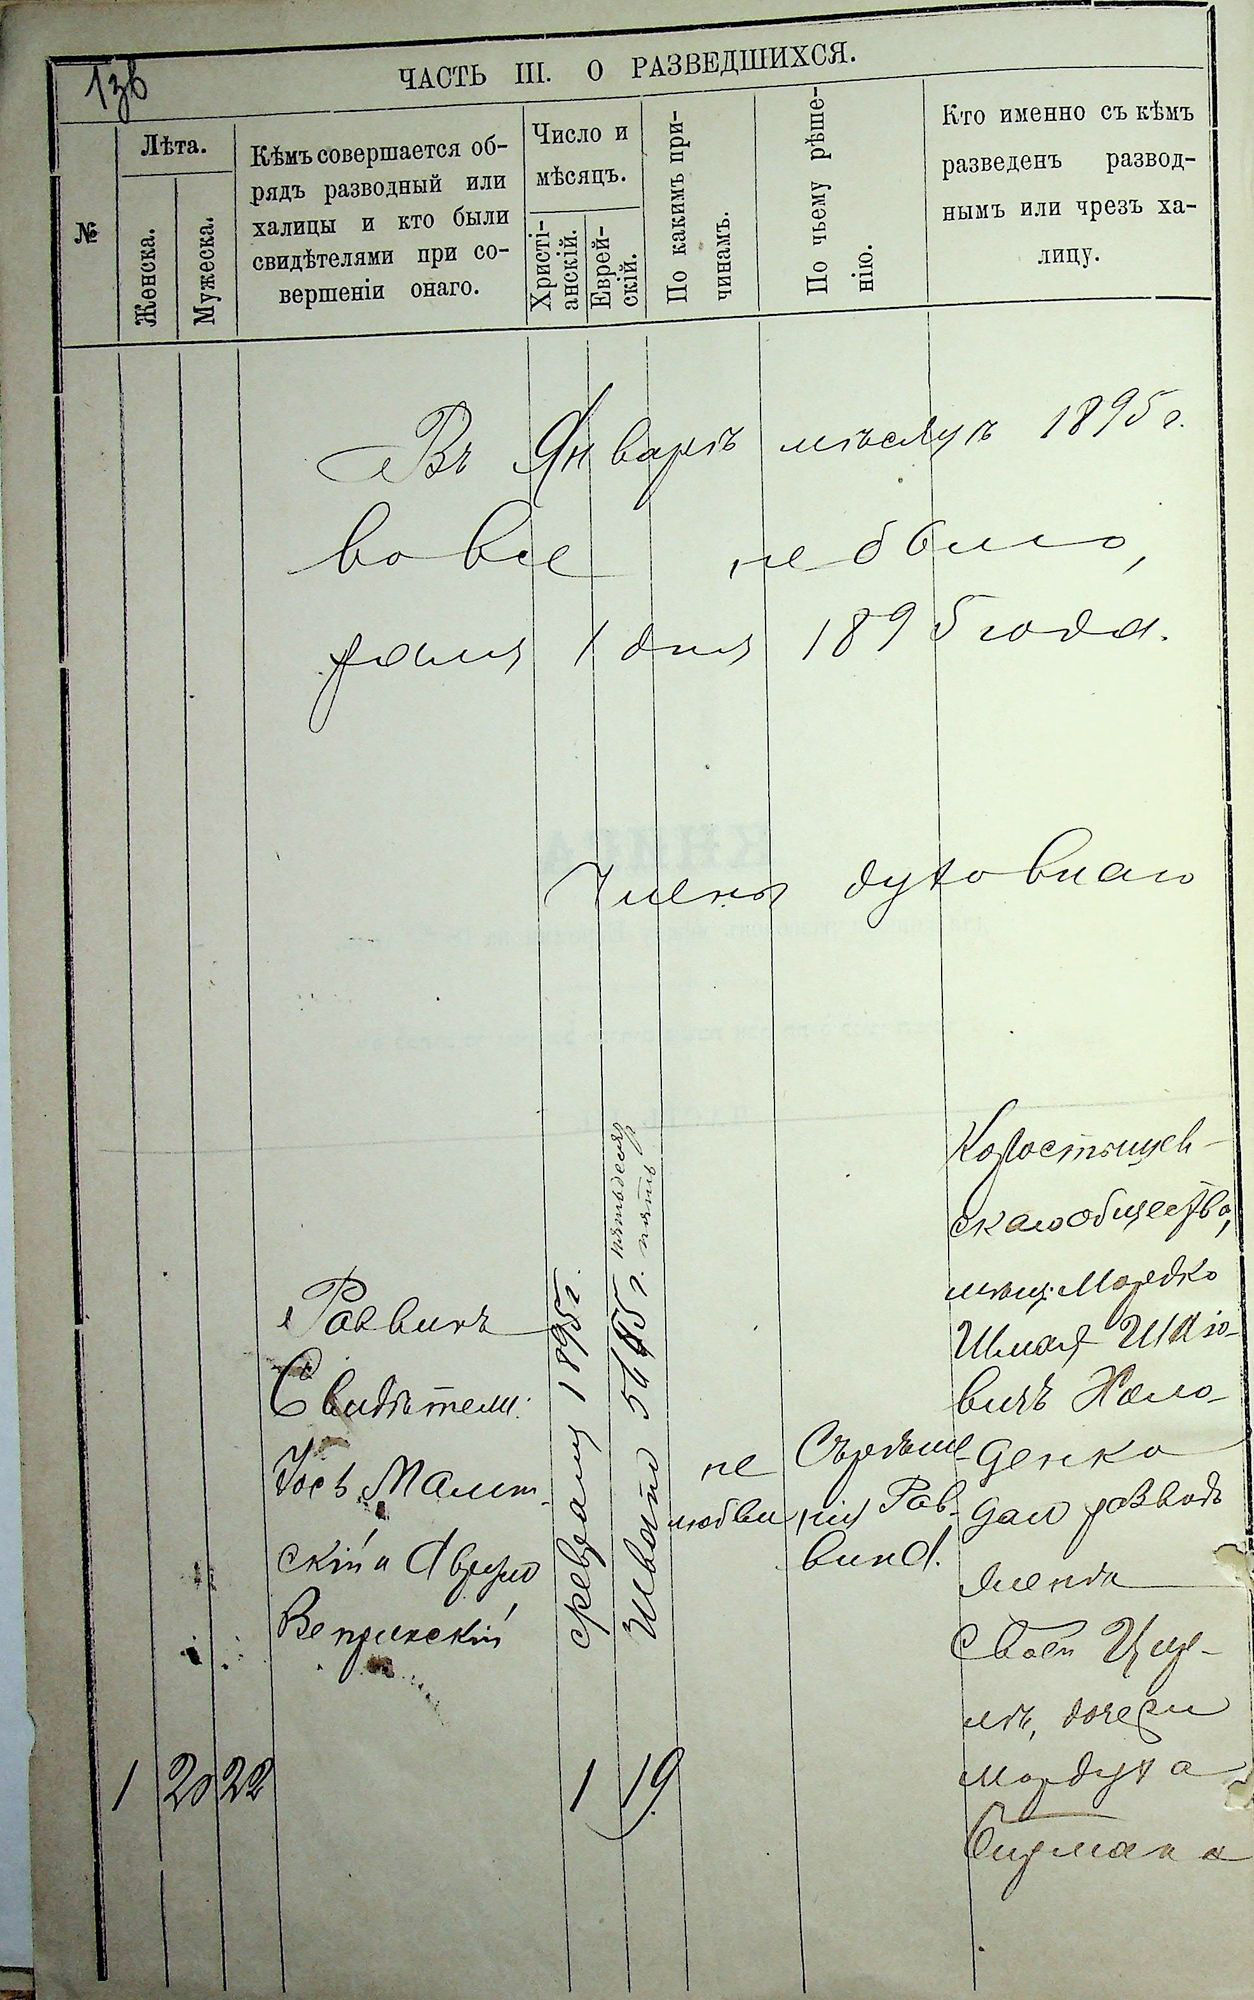 136
ЧАСТЬ III. О РАЗВЕДШИХСЯ.
№
Лѣта.
Женска.
Мужеска.
Кѣмъ совершается об-
рядъ разводный или
халицы и кто были
свидѣтелями при со-
вершеніи онаго.
Число и
мѣсяцъ.
Христі-
анскій.
Еврей-
скій.
По какимъ при-
чинамъ.
По чьему рѣше-
нію.
Кто именно съ кѣмъ
разведенъ развод-
нымъ или чрезъ ха-
лицу.
Въ Январѣ мѣсяцѣ 1895 г.
вовсе не было,
1 дня 1895 года.
Члены духовнаго
1
20
22
Раввинъ
Свидѣтели:
Іось
скій и
Вепринскій
февраля 1895 г.
1
Швато 5655 г. пятьдесятъ
пять
19
не
любви
Съ рѣше-
нія Рав-
вина.
Коростышев-
скаго общества,
мѣщ. Мордко
Шмая
вичъ Холо-
денко
далъ разводъ
женѣ
своей
дочери
Мордуха